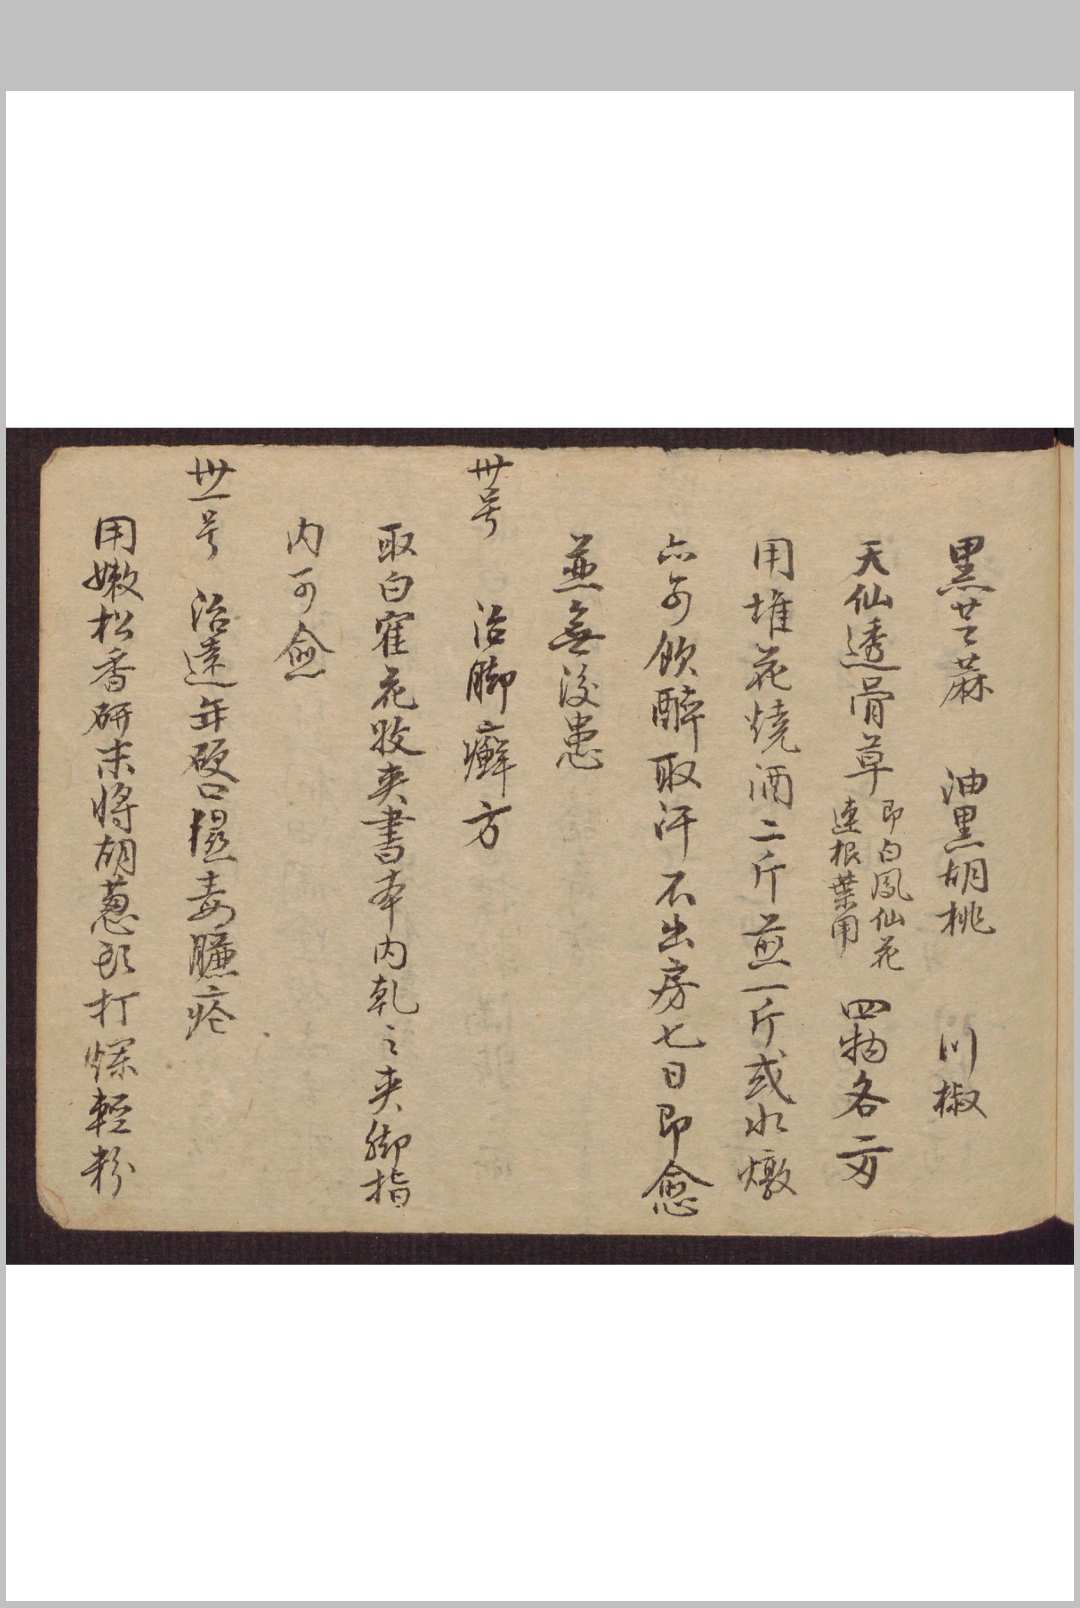 黑芝蔴　油黑胡桃　川椒
天仙透骨草 即白鳳仙花 連根葉用 四物各一两
用堆花燒酒二斤煎一斤或水燉
亦可飲醉取汗不出房七日即愈
並無後患
卅号　治脚癬方
取白花收夾書本内乾之夾脚指
内可愈
卅一号　治遠年硬口濕毒臁疮
用嫩松香研末將胡蔥打爛輕粉